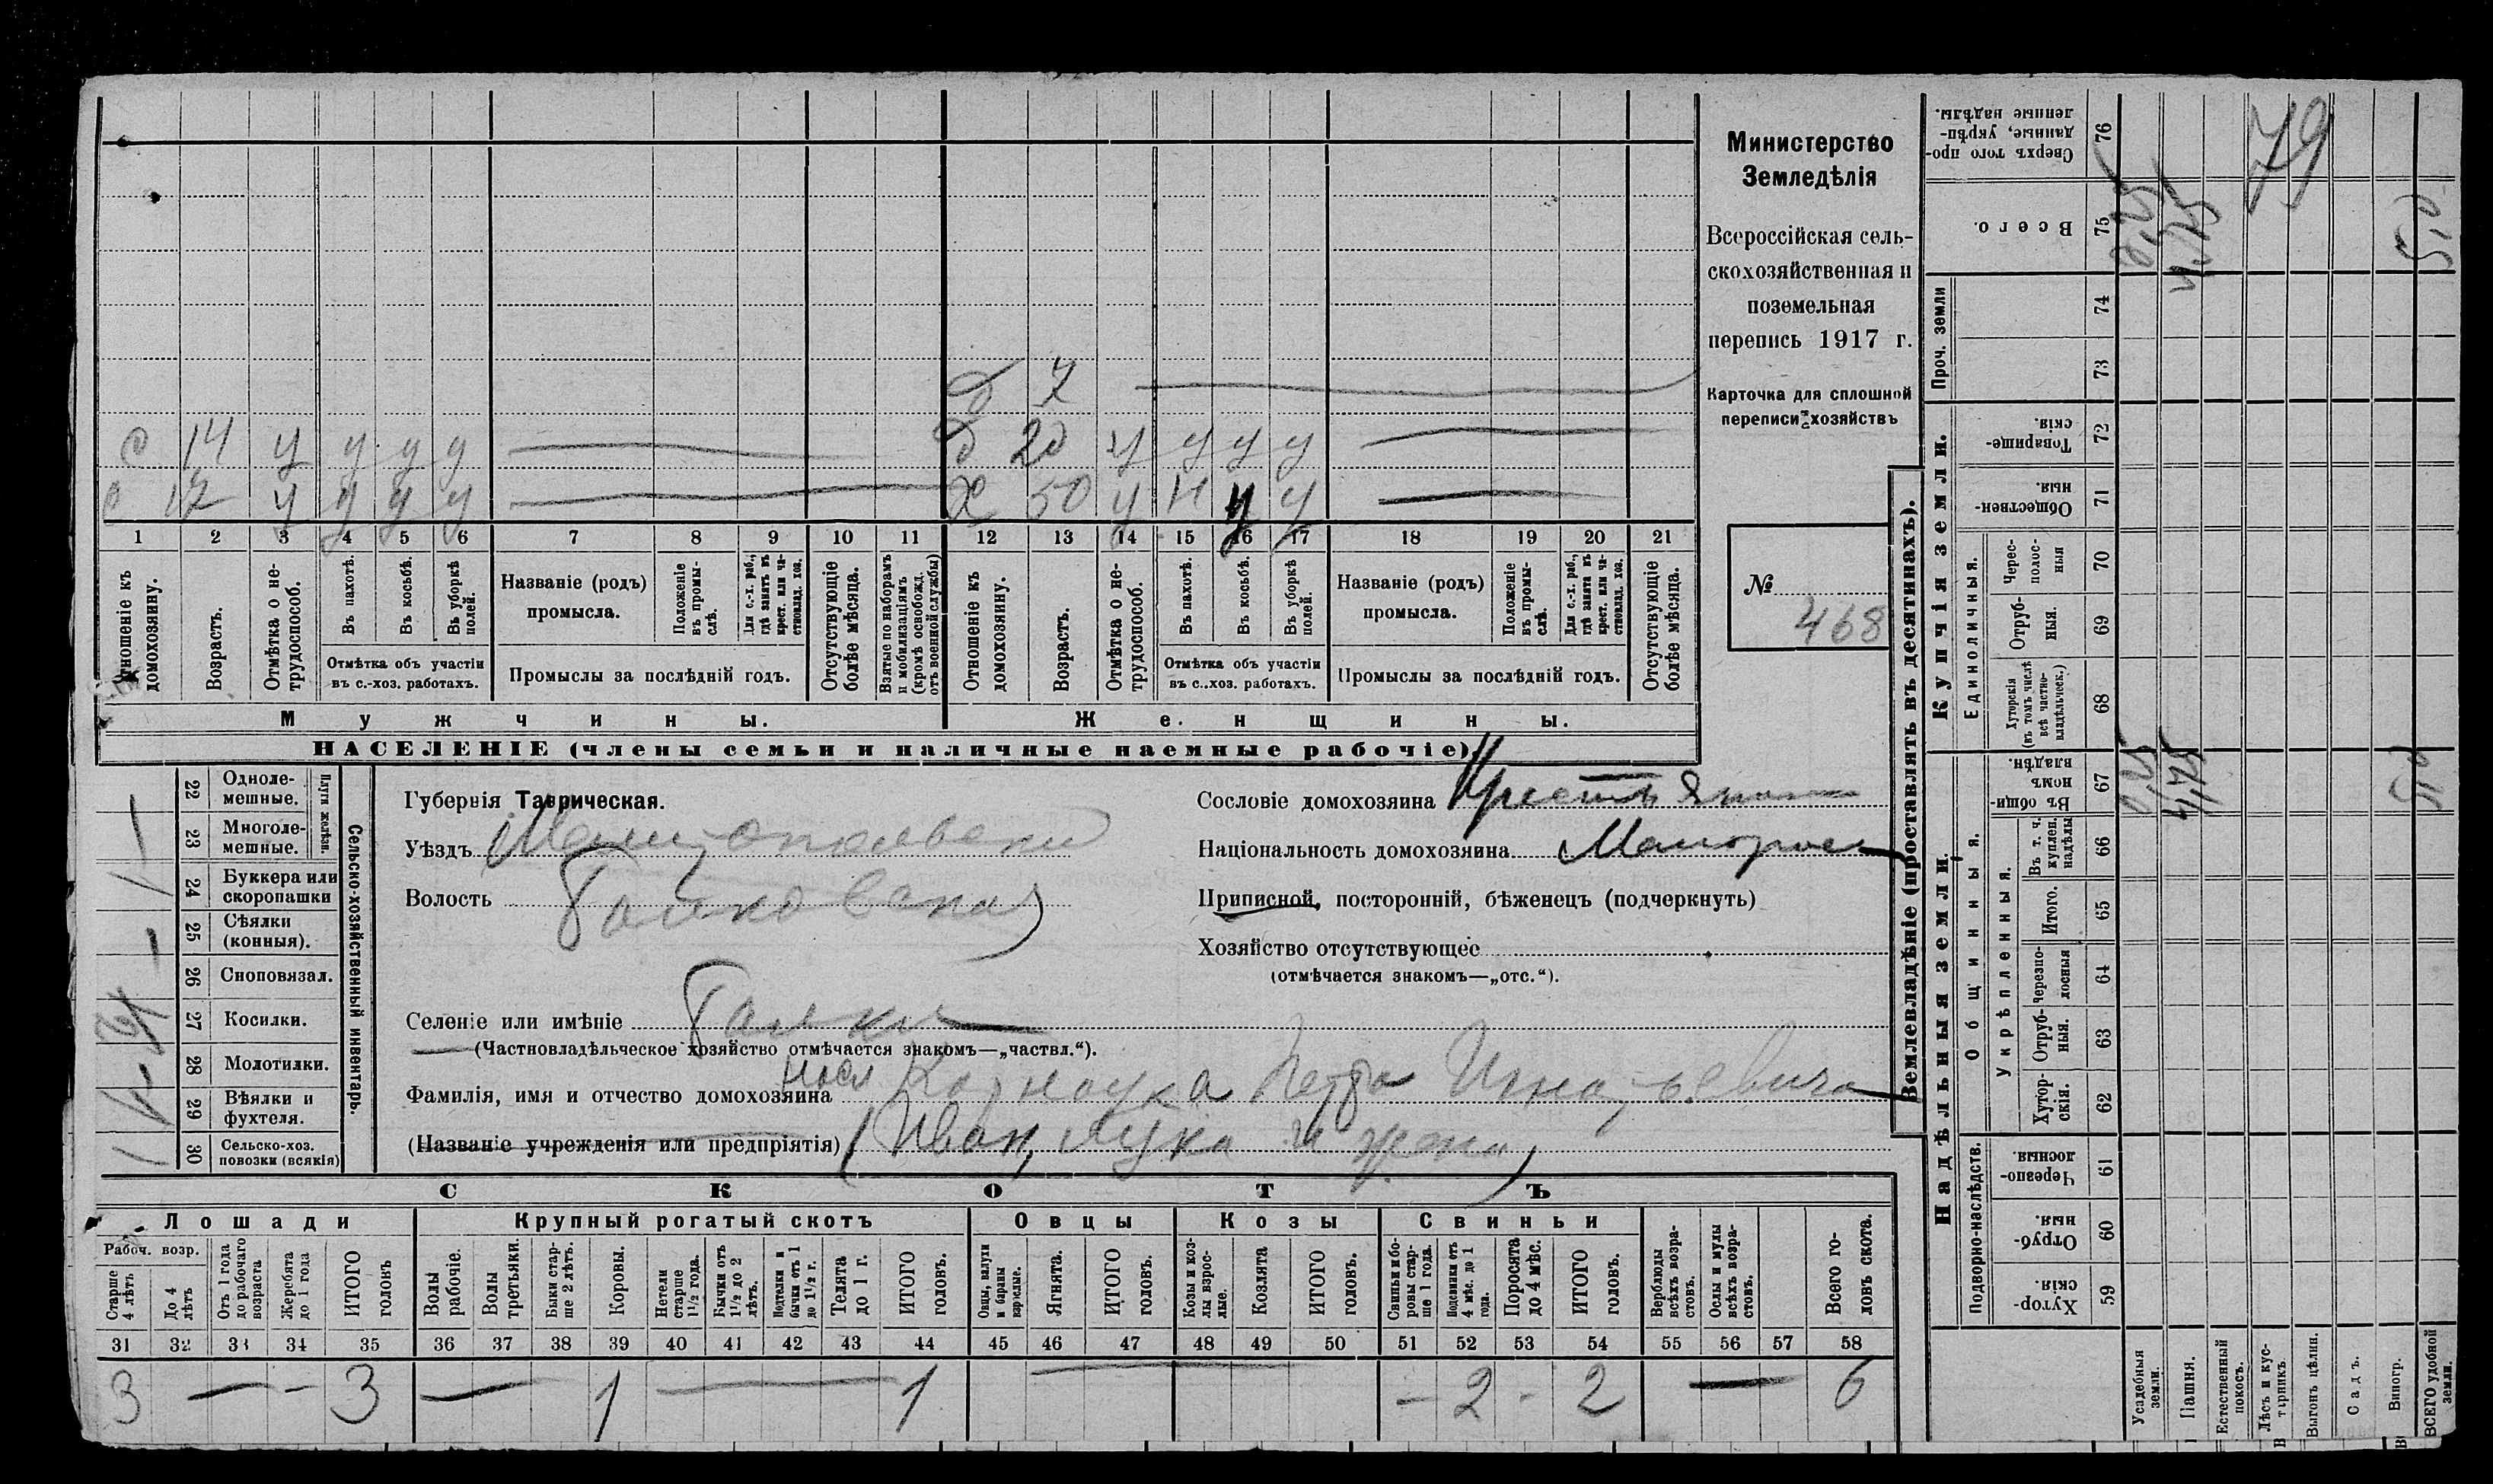 Министерство
Земледѣлія
Всероссійская сель-
скохозяйственная и
поземельная
перепись 1917 г.
Карточка для сплошной
переписи хозяйствъ
№
468
79
д 7
с 14 у у у у
д 20 у у у у
с 17 у у у у
Х 50 у н у у
1 2 3 4 5 6 7 8 9 10 11 12 13 14 15 16 17 18 19 20 21
Отношеніе къ домохозяину.
Возрастъ.
Отмѣтка о не-трудоспособ.
Въ пахотѣ.
Въ косьбѣ.
Въ уборкѣ полей.
Отмѣтка объ участіи
въ с.-хоз. работахъ.
Названіе (родъ)
промысла.
Положеніе въ промы-слѣ.
Для с.-х. раб., гдѣ занятъ въ крест. или ча-стновлад. хоз.
Промыслы за послѣдній годъ.
Отсутствующіе болѣе мѣсяца.
Взятые по наборамъ и мобилизаціямъ (кромѣ освобожд. отъ военной службы)
Отношеніе къ домохозяину.
Возрастъ.
Отмѣтка о не-трудоспособ.
Въ пахотѣ.
Въ косьбѣ.
Въ уборкѣ полей.
Отмѣтка объ участіи
въ с.-хоз. работахъ.
Названіе (родъ)
промысла.
Положеніе въ промы-слѣ.
Для с.-х. раб., гдѣ занята въ крест. или ча-стновлад. хоз.
Промыслы за послѣдній годъ.
Отсутствующіе болѣе мѣсяца.
Мужчины.
Женщины.
НАСЕЛЕНІЕ (члены семьи и наличные наемные рабочіе)
Сельско-хозяйственный инвентарь.
Плуги желѣзн.
22 Одноле-мешные.
23 Многоле-мешные.
24 Буккера или скоропашки
25 Сѣялки (конныя).
26 Сноповязал.
27 Косилки.
28 Молотилки.
29 Вѣялки и фухтеля.
30 Сельско-хоз. повозки (всякія)
Губернія Таврическая.
Уѣздъ Мелитопольскій
Волость
Селеніе или имѣніе
(Частновладѣльческое хозяйство отмѣчается знакомъ—„частвл.“).
Фамилія, имя и отчество домохозяина Корноука Петра Игнатьевича
(Названіе учрежденія или предпріятія) (Иван, Лука и жена)
Сословіе домохозяина Крестьянин
Національность домохозяина Малоросс
Приписной, посторонній, бѣженецъ (подчеркнуть)
Хозяйство отсутствующее
(отмѣчается знакомъ—„отс.“).
СКОТЪ
Лошади
Крупный рогатый скотъ
Овцы
Козы
Свиньи
Рабоч. возр.
Старше 4 лѣтъ
До 4 лѣтъ
Отъ 1 года до рабочаго возраста
Жеребята до 1 года
ИТОГО головъ
Волы рабочіе.
Волы третьяки.
Быки стар-ше 2 лѣтъ.
Коровы.
Нетели старше 1½ года.
Бычки отъ 1½ до 2 лѣтъ.
Подтелки и бычки отъ 1 до 1½ г.
Телята до 1 г.
ИТОГО головъ.
Овцы, валухи и бараны взрослые.
Ягнята.
ИТОГО головъ.
Козы и коз-лы взрос-лые.
Козлята
ИТОГО головъ.
Свиньи и бо-ровы стар-ше 1 года.
Подсвинки отъ 4 мѣс. до 1 года.
Поросята до 4 мѣс.
ИТОГО головъ.
Верблюды всѣхъ возра-стовъ.
Ослы и мулы всѣхъ возра-стовъ.
Всего го-ловъ скота.
31 32 33 34 35 36 37 38 39 40 41 42 43 44 45 46 47 48 49 50 51 52 53 54 55 56 57 58
3 — - 3 — 1 — 1 — - 2 - 2 — 6
Землевладѣніе (проставлять въ десятинахъ).
Купчія земли.
Надѣльныя земли.
Проч. земли
Единоличныя.
Общинныя.
Укрѣпленныя.
Подворно-наслѣдств.
Сверхъ того про-данные, укрѣп-ленные надѣлы.
76
Всего.
75
74
73
Товарище-скія.
72
Обществен-ныя.
71
Черес-полос-ныя
70
Отруб-ныя.
69
Хуторскія (въ томъ числѣ всѣ частно-владѣльческ.)
68
Въ общи-номъ владѣн.
67
Въ т. ч. куплен. надѣлы
66
Итого.
65
Черезпо-лосныя
64
Отруб-ныя.
63
Хутор-скія.
62
Черезпо-лосныя
61
Отруб-ныя.
60
Хутор-скія.
59
Усадебныя земли.
Пашня.
Естественный покосъ.
Лѣсъ и кус-тарникъ.
Выгонъ цѣлин.
Садъ.
Виногр.
ВСЕГО удобной земли.